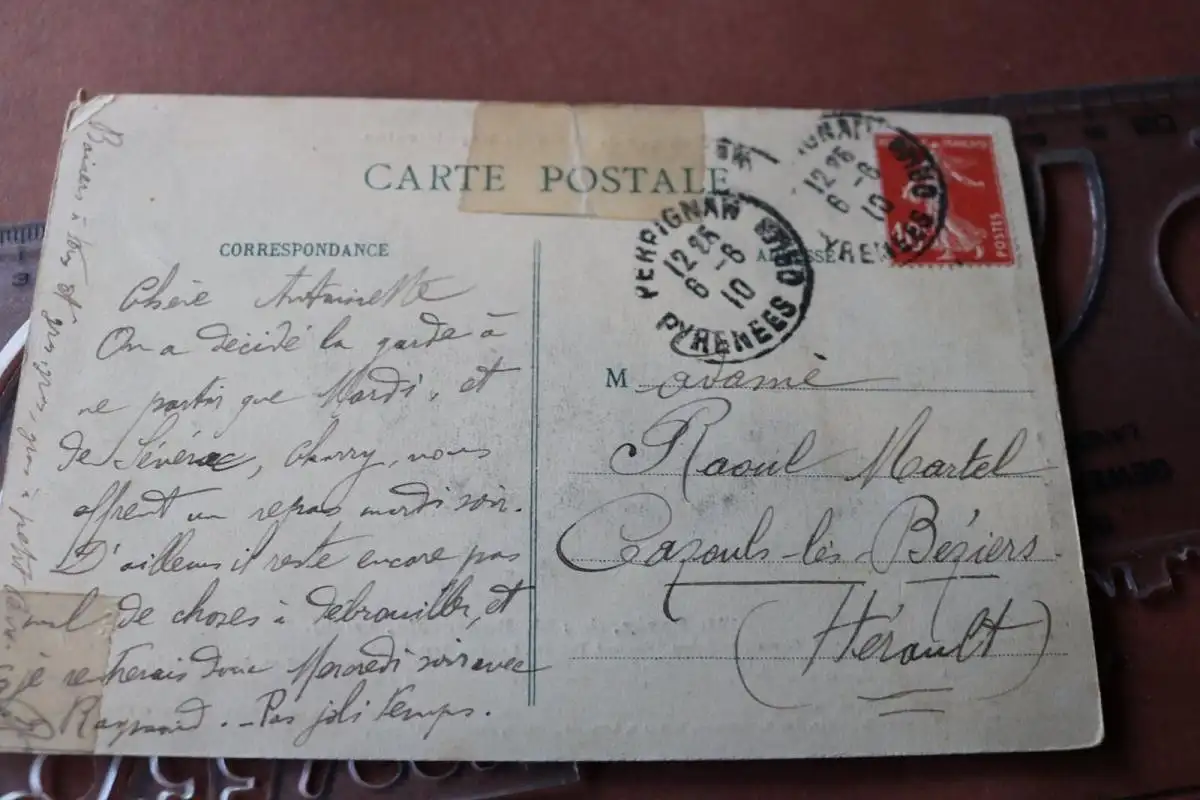 CARTE POSTALE
CORRESPONDANCE
ADRESSE
PERPIGNAN
12 25
6 - 6
10
PYRENEES ORles
12 25
6 - 6
10
POSTES
Chère Antoinette
On a décidé la garde à
ne partir que Mardi, et
de Sévérac, Charry, nous
offrent un repas mardi soir.
D'ailleurs il reste encore pas
mal de choses à débrouiller, et
je rentrerais donc Mercredi soir avec
Raymond. - Pas joli temps.
Baisers à tous et
Madame
Raoul Martel
Cazouls-lès-Béziers
(Hérault)